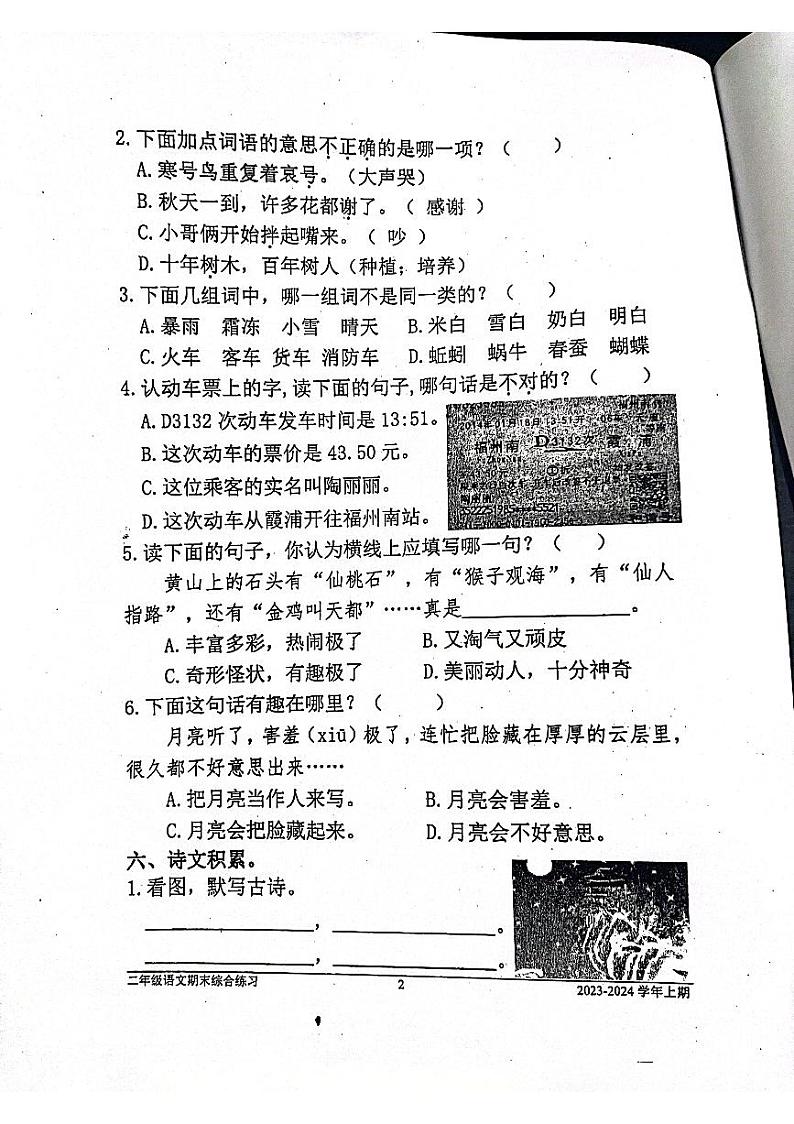 2.下面加点词语的意思不正确的是哪一项?(    )
A.寒号鸟重复着哀号。(大声哭)
B.秋天一到,许多花都谢了。( 感谢 )
C.小哥俩开始拌起嘴来。( 吵 )
D.十年树木,百年树人(种植;培养)
3.下面几组词中,哪一组词不是同一类的?(    )
A.暴雨 霜冻 小雪 晴天 B.米白 雪白 奶白 明白
C.火车 客车 货车 消防车 D.蚯蚓 蜗牛 春蚕 蝴蝶
4.认动车票上的字,读下面的句子,哪句话是不对的?(    )
A.D3132次动车发车时间是13:51。
B.这次动车的票价是43.50元。
C.这位乘客的实名叫陶丽丽。
D.这次动车从霞浦开往福州南站。
2014年01月18日 13:51开
福州南 D3132次 霞浦
5.读下面的句子,你认为横线上应填写哪一句?(    )
黄山上的石头有“仙桃石”,有“猴子观海”,有“仙人
指路”,还有“金鸡叫天都”……真是____________。
A.丰富多彩,热闹极了 B.又淘气又顽皮
C.奇形怪状,有趣极了 D.美丽动人,十分神奇
6.下面这句话有趣在哪里?(    )
月亮听了,害羞(xiū)极了,连忙把脸藏在厚厚的云层里,
很久都不好意思出来……
A.把月亮当作人来写。 B.月亮会害羞。
C.月亮会把脸藏起来。 D.月亮会不好意思。
六、诗文积累。
1.看图,默写古诗。
____________,____________。
____________,____________。
二年级语文期末综合练习 2 2023-2024学年上期